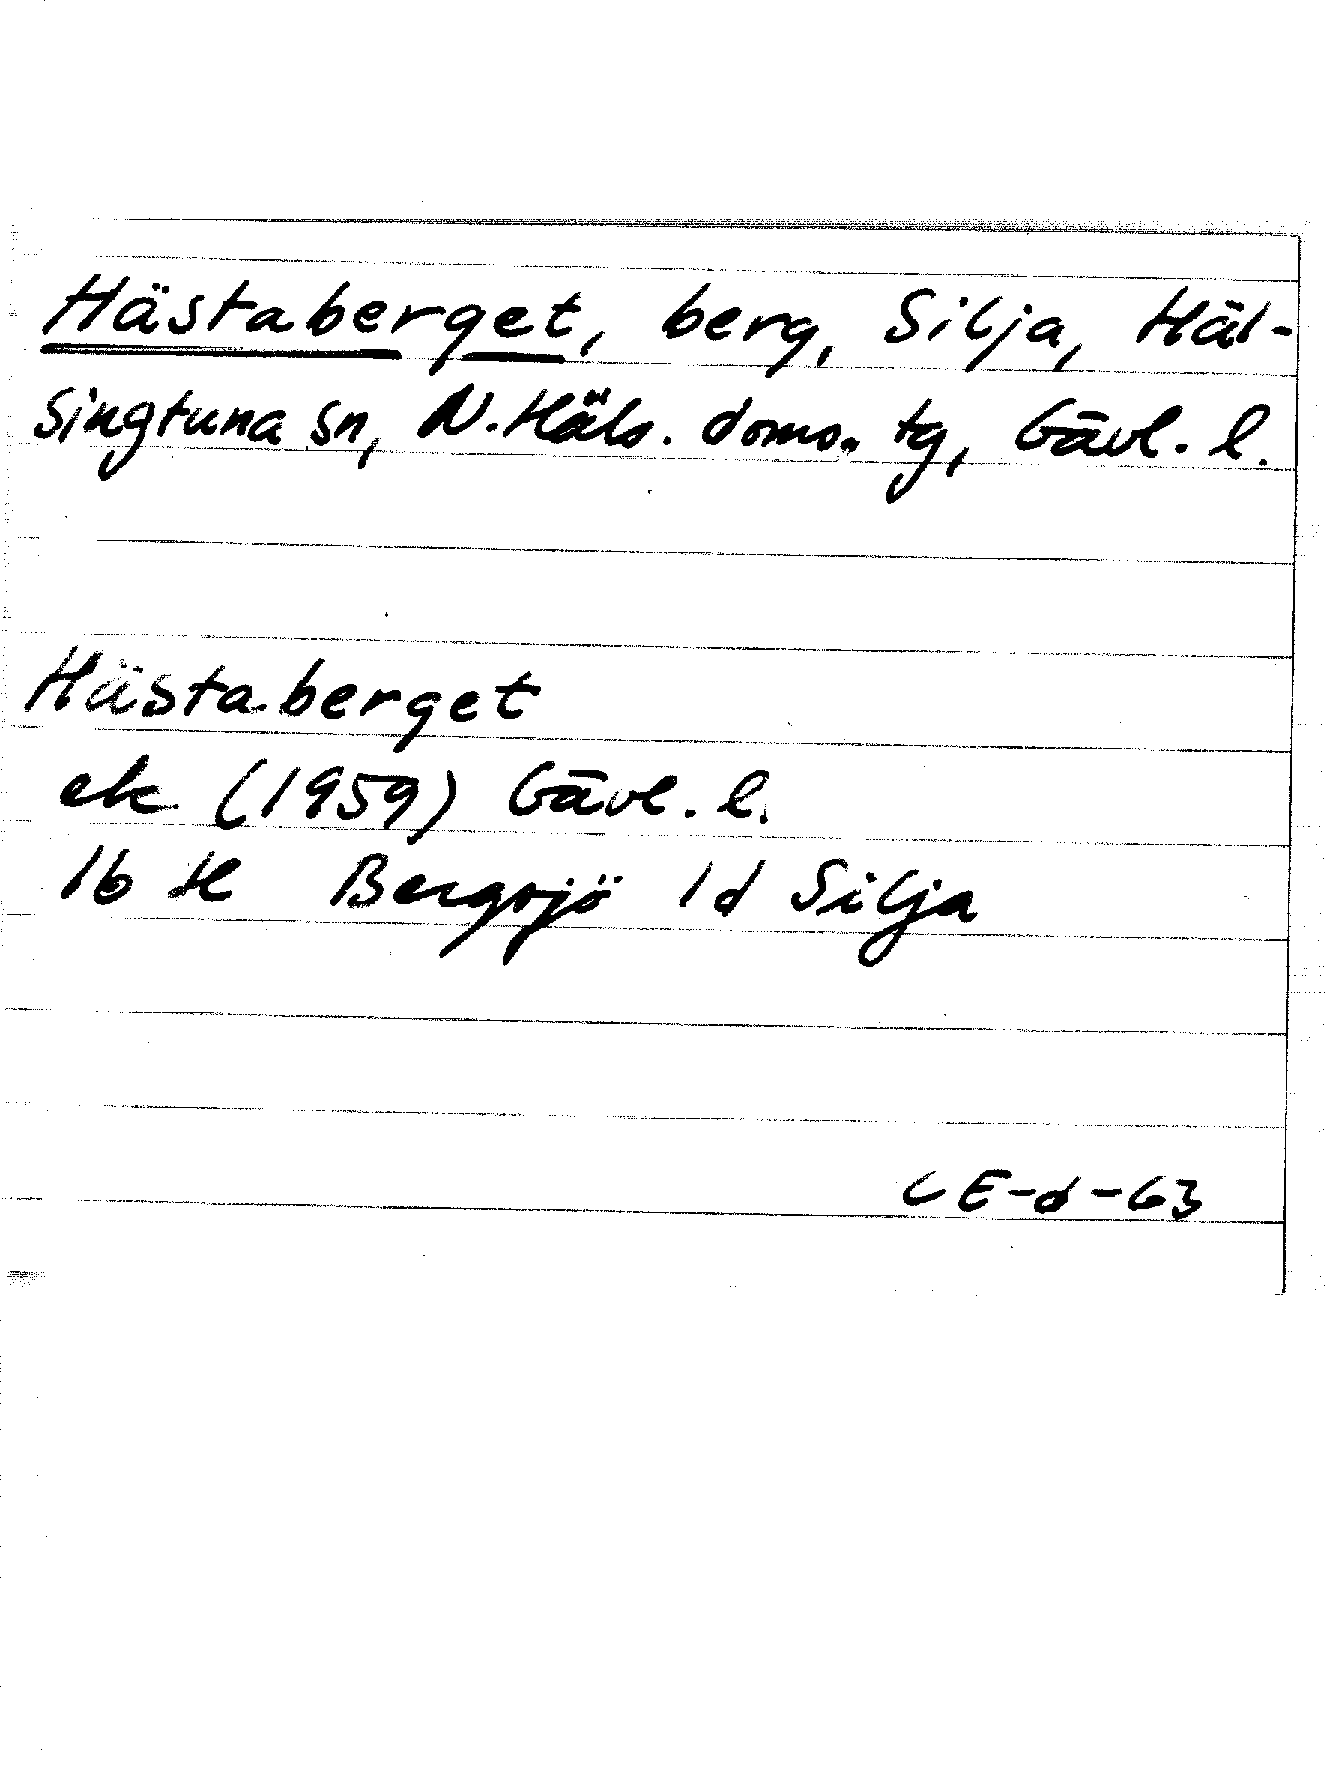 Hästaberget, berg, Silja, Häl-
singtuna sn, N. Häls. doms. tg, Gävl. l.
Hästaberget
ek (1959) Gävl. l.
16 H Bergsjö 1d Silja
CE-d-63